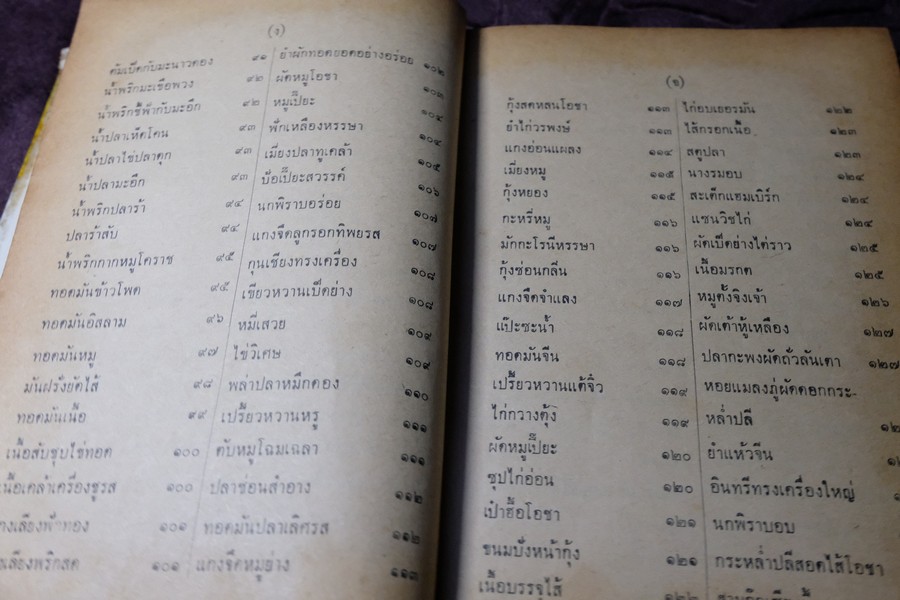 (ง)
ต้มเป็ดกับมะนาวดอง ๙๑
น้ำพริกมะเขือพวง ๙๒
น้ำพริกชี้ฟ้ากับมะอึก ๙๒
น้ำปลาเห็ดโคน ๙๓
น้ำปลาไข่ปลาดุก ๙๓
น้ำปลามะอึก ๙๓
น้ำพริกปลาร้า ๙๔
ปลาร้าสับ ๙๔
น้ำพริกกากหมูโคราช ๙๕
ทอดมันข้าวโพด ๙๕
ทอดมันอิสลาม ๙๖
ทอดมันหมู ๙๗
มันฝรั่งยัดไส้ ๙๘
ทอดมันเนื้อ ๙๙
เนื้อสับชุบไข่ทอด ๑๐๐
เนื้อเคล้าเครื่องชูรส ๑๐๐
เลียงฟักทอง ๑๐๑
เลียงพริกสด ๑๐๑
ยำผักทอดยอดอย่างอร่อย ๑๐๒
ผัดหมูโอชา ๑๐๓
หมูเปี๊ยะ ๑๐๔
ฟักเหลืองหรรษา ๑๐๔
เมี่ยงปลาทูเคล้า ๑๐๕
ปอเปี๊ยะสวรรค์ ๑๐๖
นกพิราบอร่อย ๑๐๗
แกงจืดลูกรอกทิพยรส ๑๐๗
กุนเชียงทรงเครื่อง ๑๐๘
เขียวหวานเป็ดย่าง ๑๐๘
หมี่เสวย ๑๐๙
ไข่วิเศษ ๑๐๙
พล่าปลาหมึกดอง ๑๑๐
เปรี้ยวหวานหรู ๑๑๑
ตับหมูโฉมเฉลา ๑๑๑
ปลาช่อนสำอาง ๑๑๒
ทอดมันปลาเลิศรส ๑๑๒
แกงจืดหมูย่าง ๑๑๓
(จ)
กุ้งสดหลนโอชา ๑๑๓
ยำไก่วรพงษ์ ๑๑๓
แกงอ่อมแผลง ๑๑๔
เมี่ยงหมู ๑๑๕
กุ้งหยอง ๑๑๕
กะหรี่หมู ๑๑๖
มักกะโรนีหรรษา ๑๑๖
กุ้งซ่อนกลิ่น ๑๑๖
แกงจืดจำแลง ๑๑๗
แป๊ะซะน้ำ ๑๑๘
ทอดมันจีน ๑๑๘
เปรี้ยวหวานแต้จิ๋ว ๑๑๙
ไก่กวางตุ้ง ๑๑๙
ผัดหมูเปี๊ยะ ๑๒๐
ซุปไก่อ่อน ๑๒๐
เป๋าฮื้อโอชา ๑๒๑
ขนมปังหน้ากุ้ง ๑๒๑
เนื้อบรรจุไส้ ๑๒๒
ไก่อบเยอรมัน ๑๒๒
ไส้กรอกเนื้อ ๑๒๓
สตูปลา ๑๒๓
นางรมอบ ๑๒๔
สะเต็กแฮมเบิร์ก ๑๒๔
แซนวิชไก่ ๑๒๔
ผัดเป็ดย่างไต่ราว ๑๒๕
เนื้อมรกต ๑๒๕
หมูตั้งจิงเจ้า ๑๒๖
ผัดเต้าหู้เหลือง ๑๒๗
ปลากะพงผัดถั่วลันเตา ๑๒๗
หอยแมลงภู่ผัดดอกกระ-
หล่ำปลี
ยำแห้วจีน
อินทรีทรงเครื่องใหญ่
นกพิราบอบ
กระหล่ำปลีสอดไส้โอชา